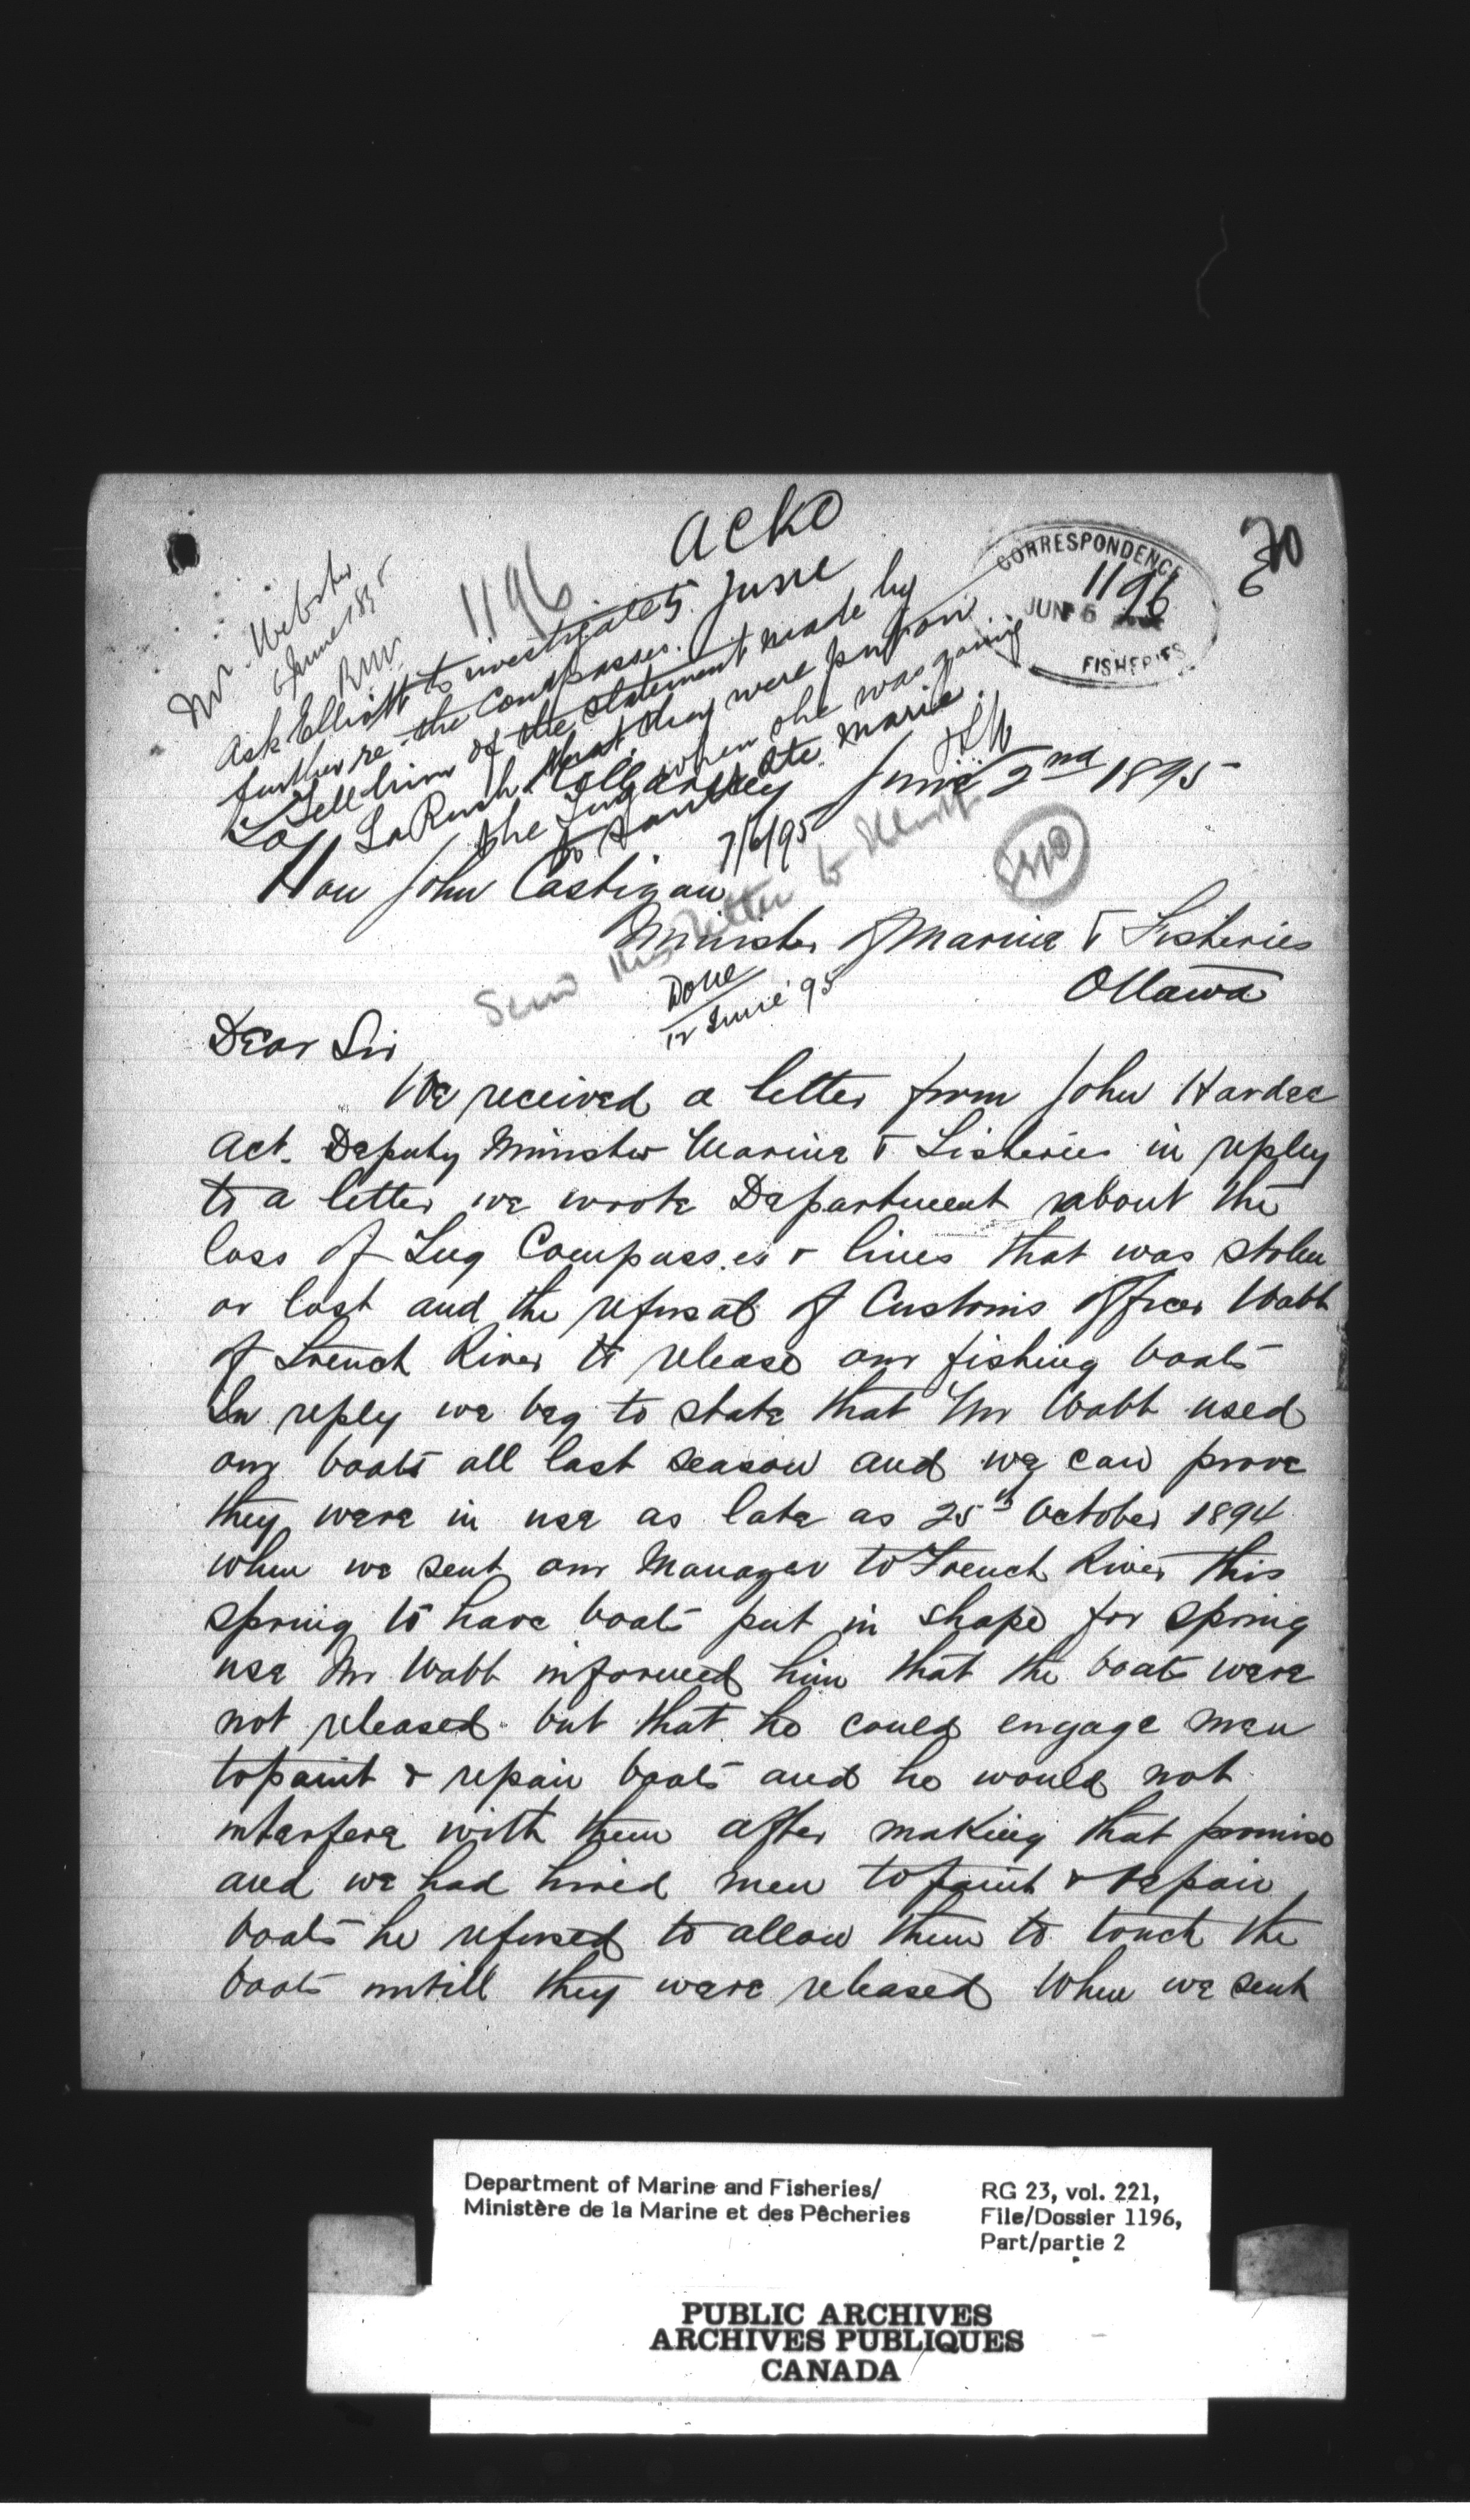 Ackd
5 June
CORRESPONDENCE
1196
JUN 5
FISHERIES
1196
Mr Webster
6 June 1895
RW
Ask Elliott to investigate
further re-the Compasses.
Tell him of the statement made by
La Rush that they were put on
the Tug when she was going
to Sault Ste. Marie.
7/6/95
Collins Inlet June 2nd 1895
Hon John Costigan
Minister of Marine & Fisheries
Ottawa
Send this letter to
Done
12 June '95
Dear Sir
We received a letter from John Hardee
Act. Deputy Minister Marine & Fisheries in reply
to a letter we wrote Department about the
loss of Tug Compasses & lines that was stolen
or lost and the refusal of Customs Officer Wabb
of French River to release our fishing boats
In reply we beg to state that Mr Wabb used
our boats all last season and we can prove
they were in use as late as 25th October 1894
when we sent our Manager to French River this
spring to have boats put in shape for spring
use Mr Wabb informed him that the boats were
not released but that he could engage men
to paint & repair boats and he would not
interfere with them after making that promise
and we had hired men to paint & repair
boats he refused to allow them to touch the
boats untill they were released When we sent
Department of Marine and Fisheries/
Ministère de la Marine et des Pêcheries
RG 23, vol. 221,
File/Dossier 1196,
Part/partie 2
PUBLIC ARCHIVES
ARCHIVES PUBLIQUES
CANADA